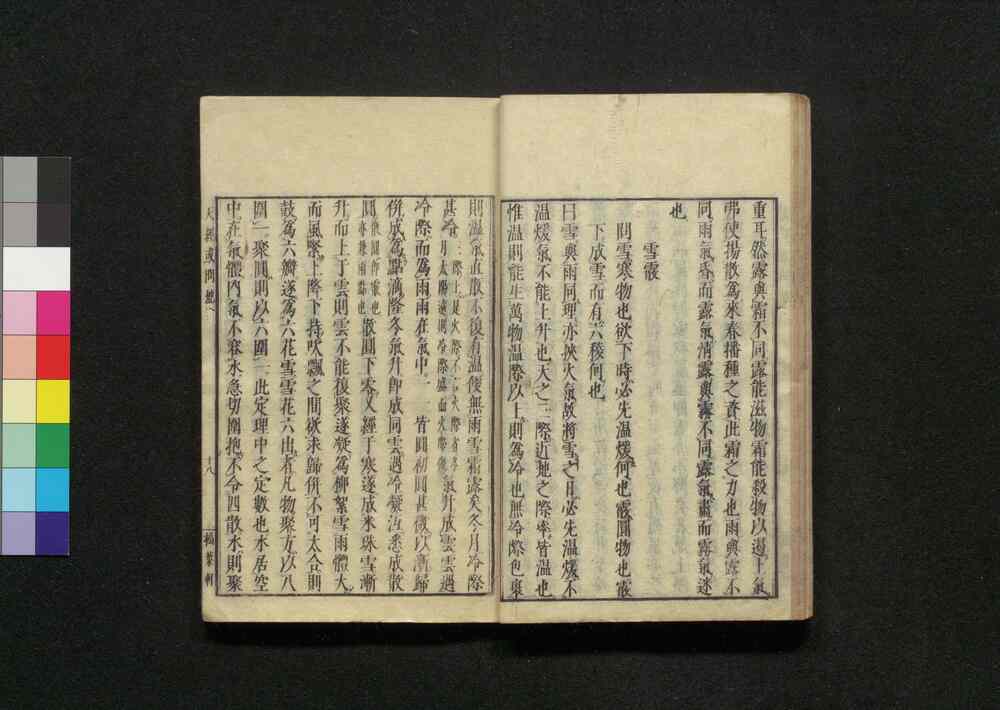 重耳然露與霜不同露能滋物霜能殺物以遏土氣
弗使揚散爲來春播種之資此霜之力也雨與露不
同雨氣昏而露氣清露與霧不同露氣藎而霧氣迷
也
雪霰
問雪寒物也欲下時必先温煖何也霰圓物也霰
下成雪而有六稜何也
曰雪與雨同理亦挾火氣故將雪之日必先温煖不
温煖氣不能上升也天之三際近地之際率皆温也
惟温則能生萬物温際以上則爲冷也無冷際包裹
則温氣直散不復有温便無雨雪霜露矣冬月冷際
甚冷氣升成雲雲遇
冷際而爲雨雨在氣中一一皆圓初圓甚微以漸歸
併成爲點滴降冬氣升卽成同雲遇冷凝沍悉成散
圓散圓下零又經于寒遂成米珠雪漸
升而上于雲則雲不能復聚遂凝爲柳絮雪雨體大
而風緊上降下持吹飄之間欲求歸併不可太合則
鼓爲六瓣遂爲六花雪雪花六出者凡物聚方以八
圍一聚圓則以六圍一此定理中之定數也水居空
中在氣體内氣不容水急切圍抱不令四散水則聚
天經或問
十八